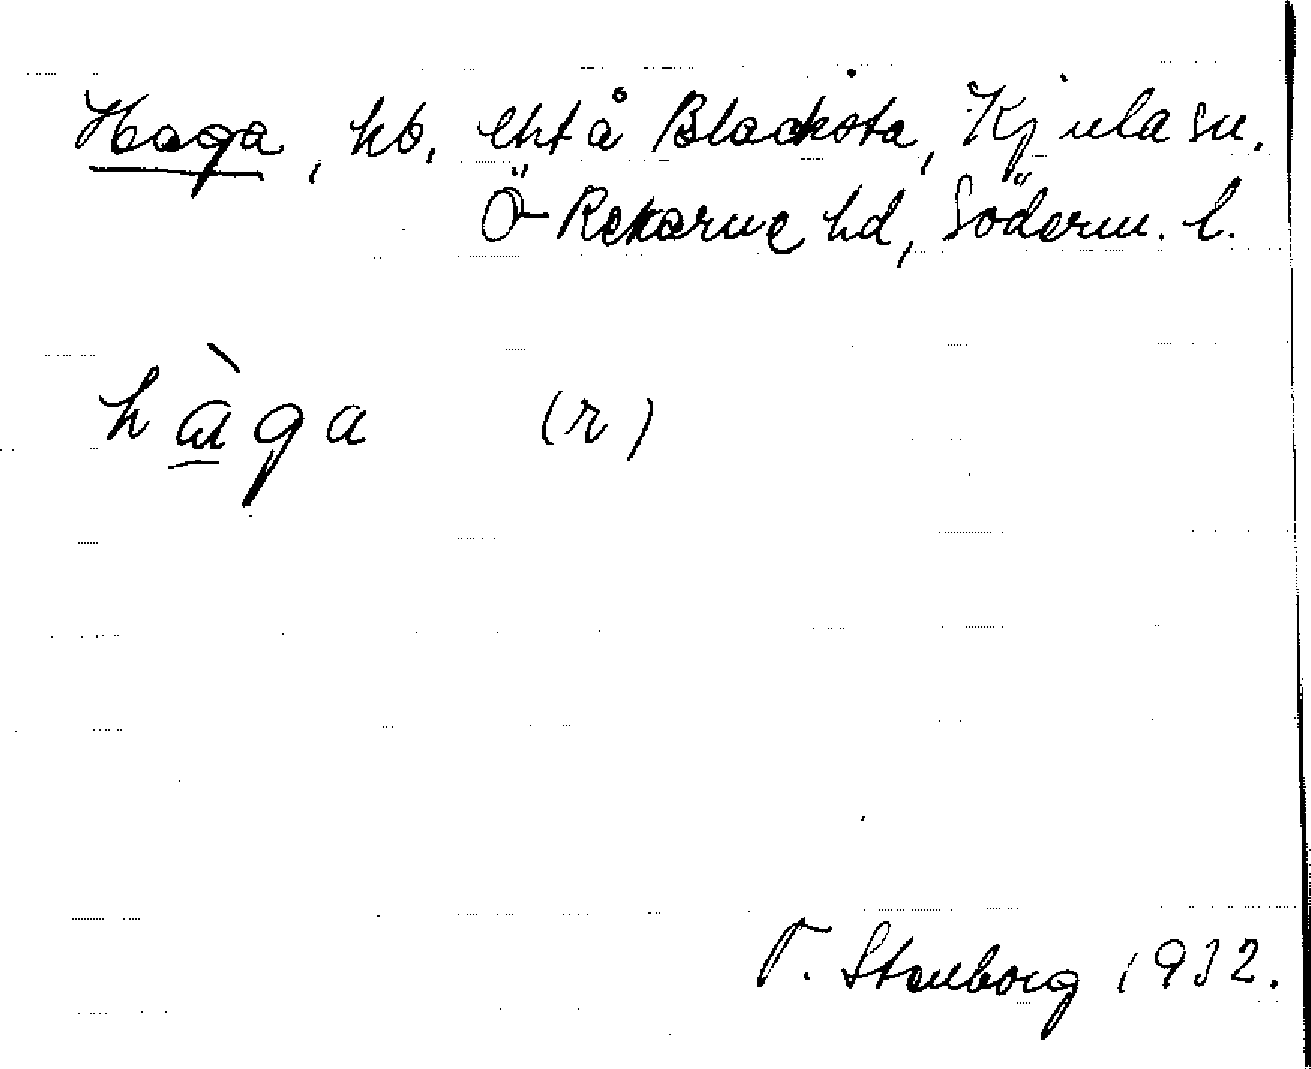 Haga, hb. lht å Blacksta, Kjula sn.
Ö-Rekarne hd, Söderm. l.
hàga (r)
T. Stenborg 1932.